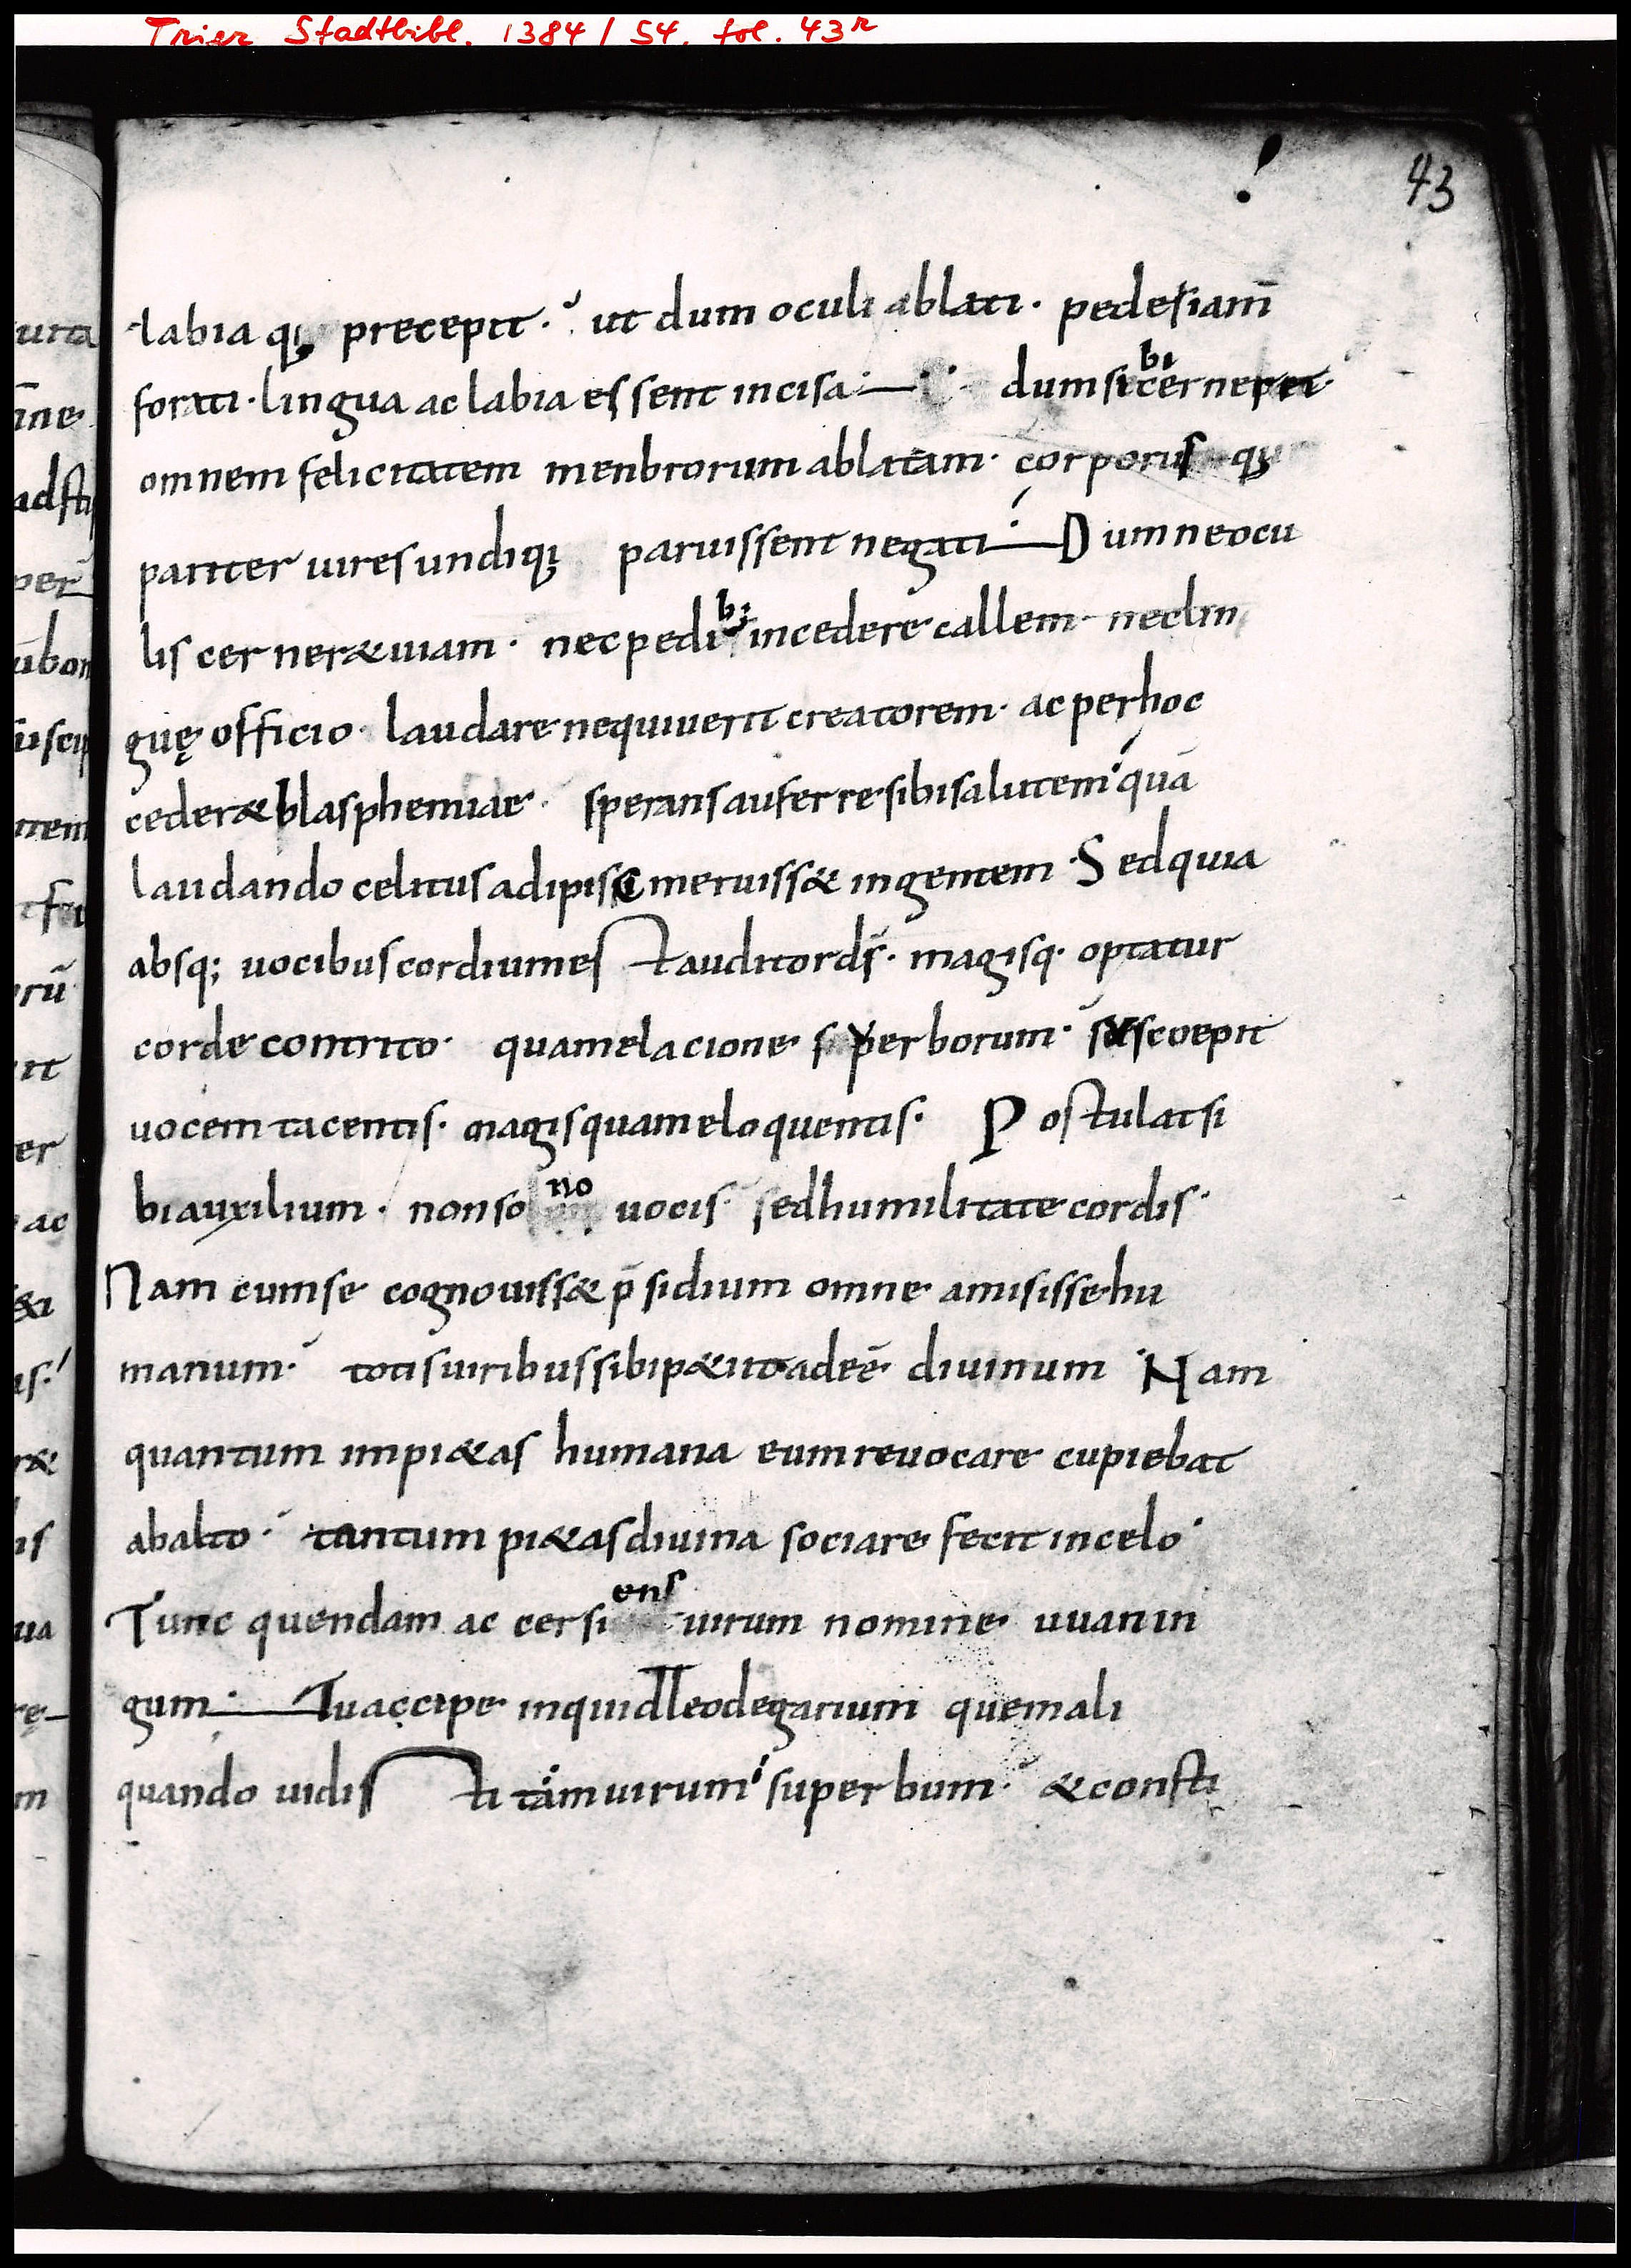 Trier Stadtbibl. 1384 / 54. fol. 43r
43
labia q; precepit. ut dum oculi ablati. pedes iam̄
forati. lingua ac labia essent incisa. dum si bi cerneret
omnem felicitatem menbrorum ablatam. corporis q;
pariter uires undiq; paruissent negati Dum ne ocu
lis cerner& uiam. nec pedib; incedere callem nec lin
guę officio laudare nequiuerit creatorem ac per hoc
ceder& blasphemiae. sperans auferre sibi salutem quā
laudando celitus adipisci meruiss& ingentem. Sed quia
absq; uocibus cordium est auditor ds̄. magisq. optatur
corde contrito. quam elacione superborum. suscoepit
uocem tacentis. magis quam eloquentis. Postulat si
bi auxilium. non sono uocis sedhumilitate cordis.
Nam cum se cognouiss& p̄sidium omne amisisse hu
manum. totis uiribus sibi p&iit adeē diuinum Nam
quantum impi&as humana eum reuocare cupiebat
abalto. tantum pi&as diuina sociare fecit in celo.
Tunc quendam ac cersiens uirum nomine uuanin
gum. Tu accipe inquid leodegarium quem ali
quando uidisti tam uirum superbum. & consti